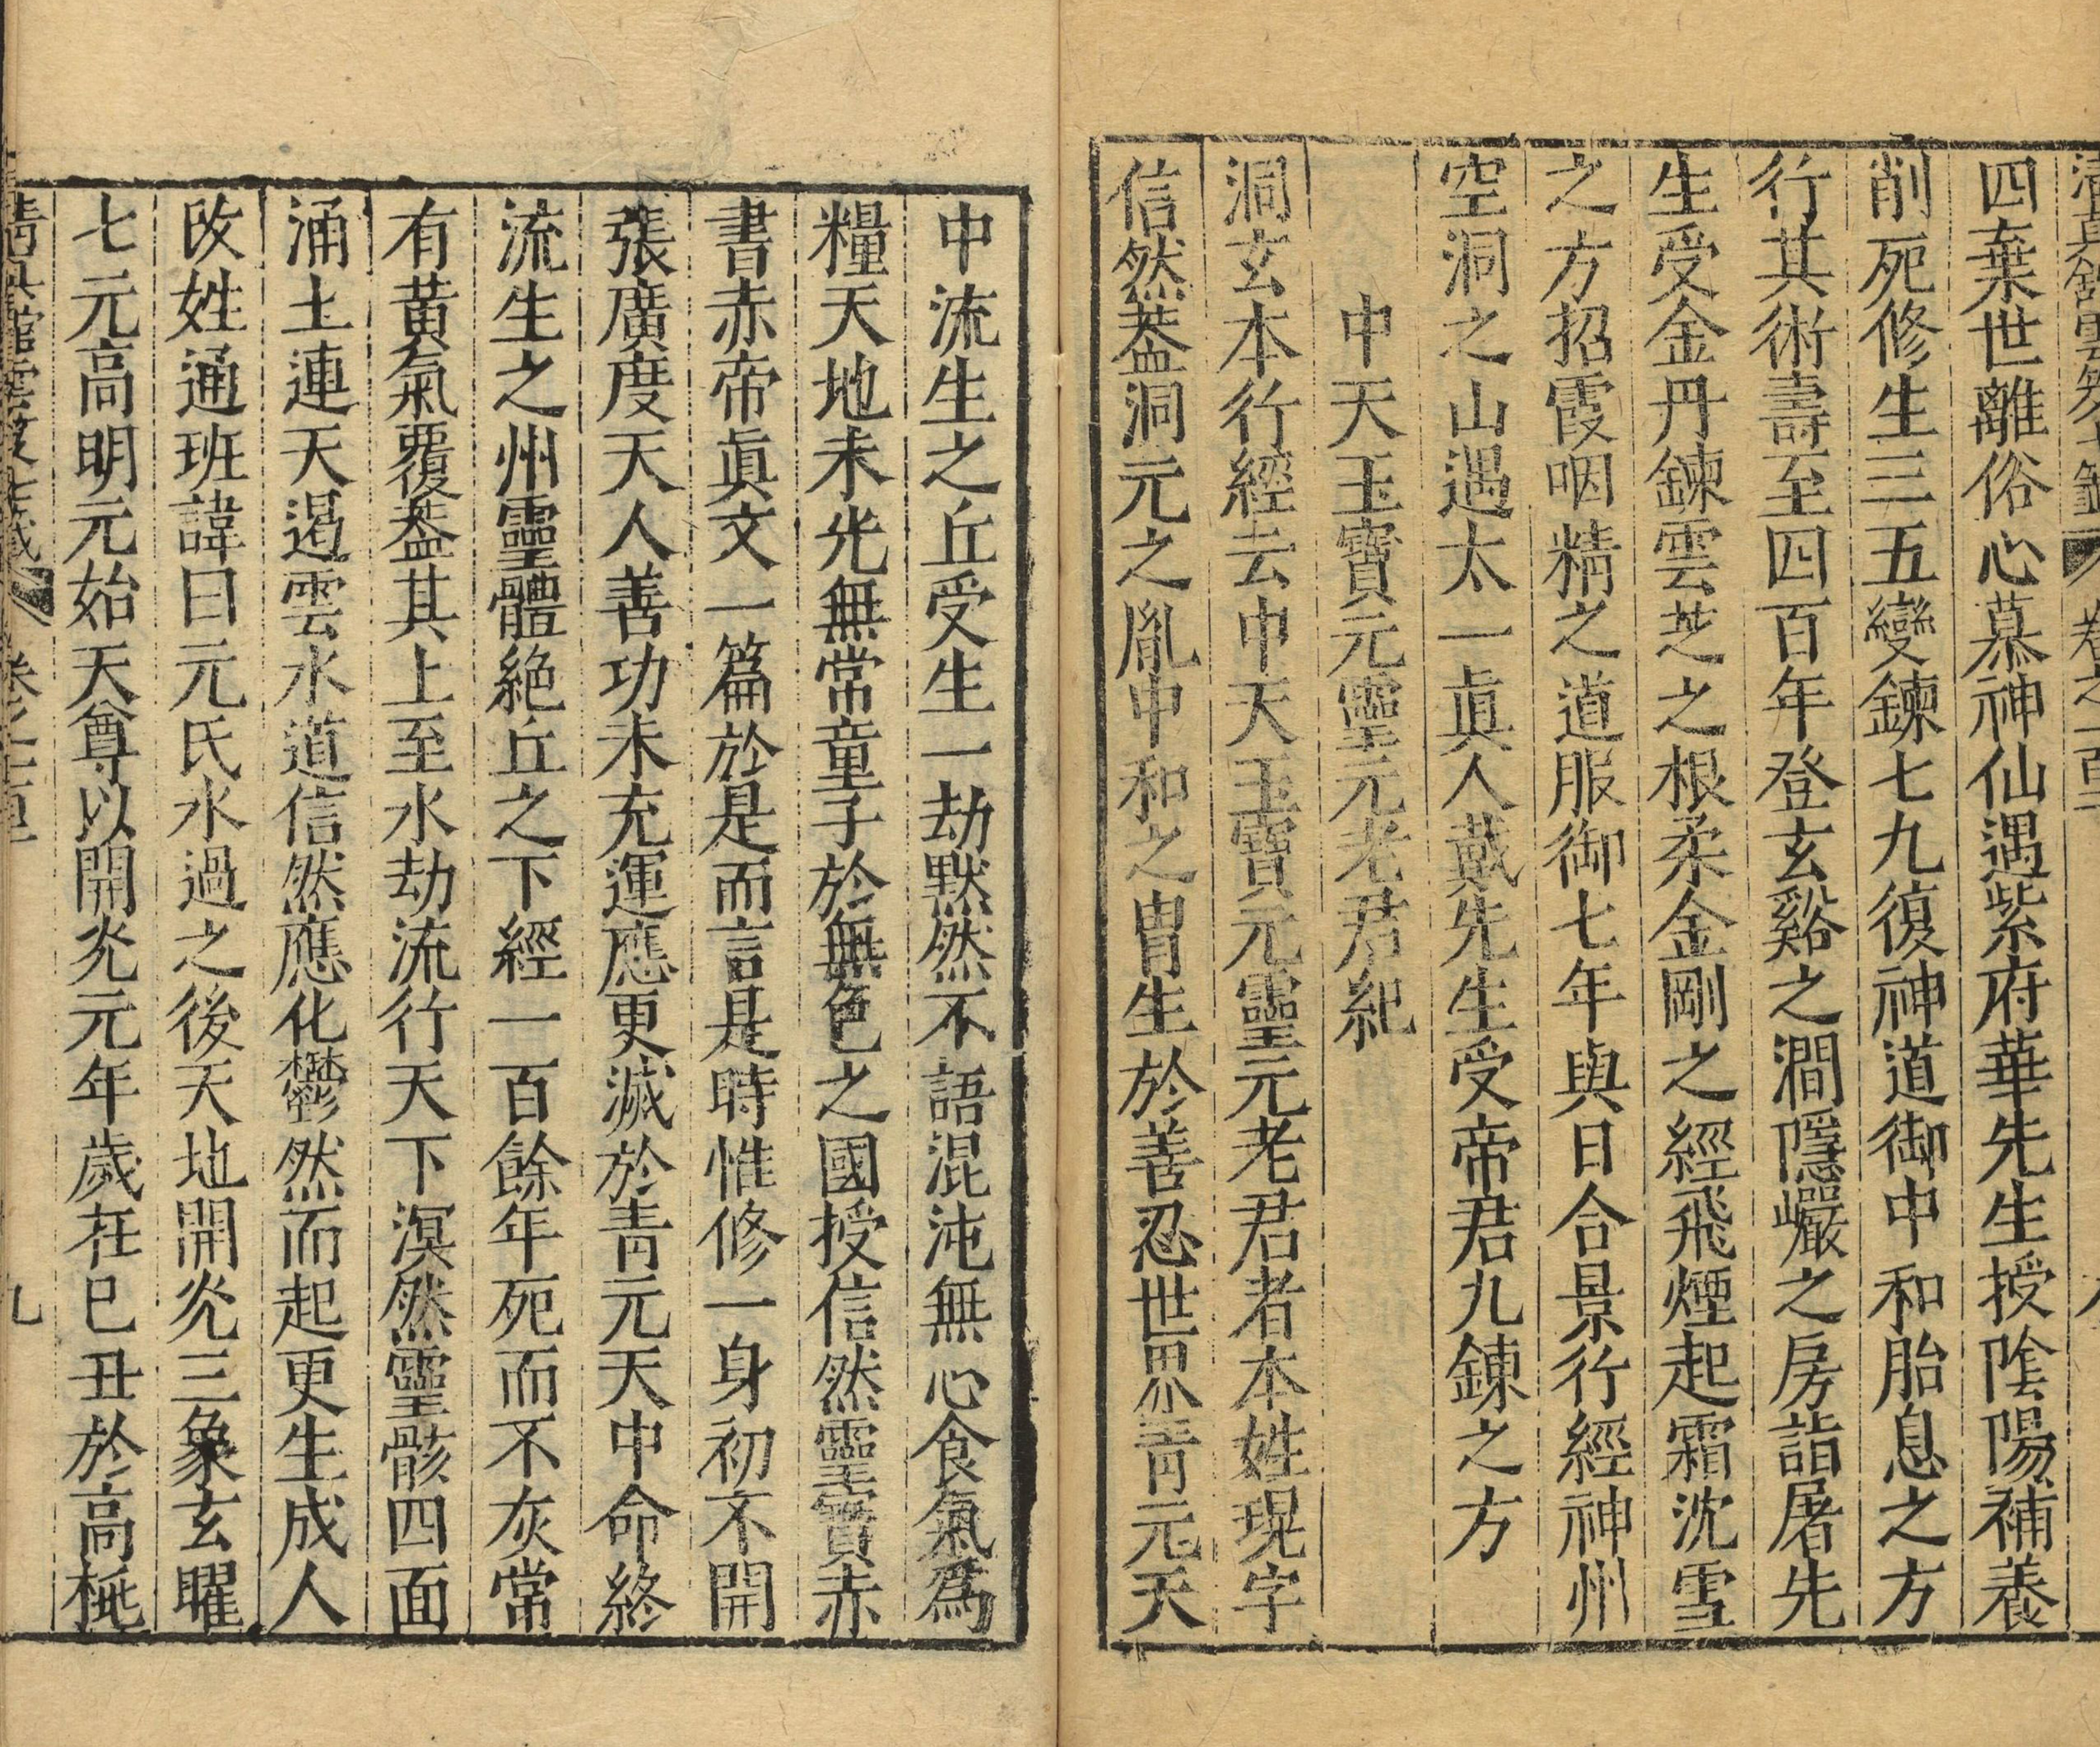 清真館雲笈七籤 卷之一百一
四棄世離俗心慕神仙遇紫府華先生授陰陽補養
削死修生三五變鍊七九復神道御中和胎息之方
行其術壽至四百年登玄谿之澗隱巖之房詣屠先
生受金丹鍊雲芝之根柔金剛之經飛煙起霜沈雪
之方招霞咽精之道服御七年與日合景行經神州
空洞之山遇太一眞人戴先生受帝君九鍊之方
中天玉寶元靈元老君紀
洞玄本行經云中天玉寶元靈元老君者本姓琨字
信然葢洞元之胤中和之胄生於善忍世界靑元天
中流生之丘受生一劫默然不語混沌無心食氣爲
糧天地未光無常童子於無色之國授信然靈寶赤
書赤帝眞文一篇於是而言是時惟修一身初不開
張廣度天人善功未充運應更滅於靑元天中命終
流生之州靈體絶丘之下經一百餘年死而不灰常
有黄氣覆葢其上至水劫流行天下溟然靈骸四面
涌土連天遏雲水道信然應化鬱然而起更生成人
改姓通班諱曰元氏水過之後天地開光三象玄曜
七元高明元始天尊以開光元年歲在巳丑於高桃
清眞館雲笈七籤 卷之一百一 九